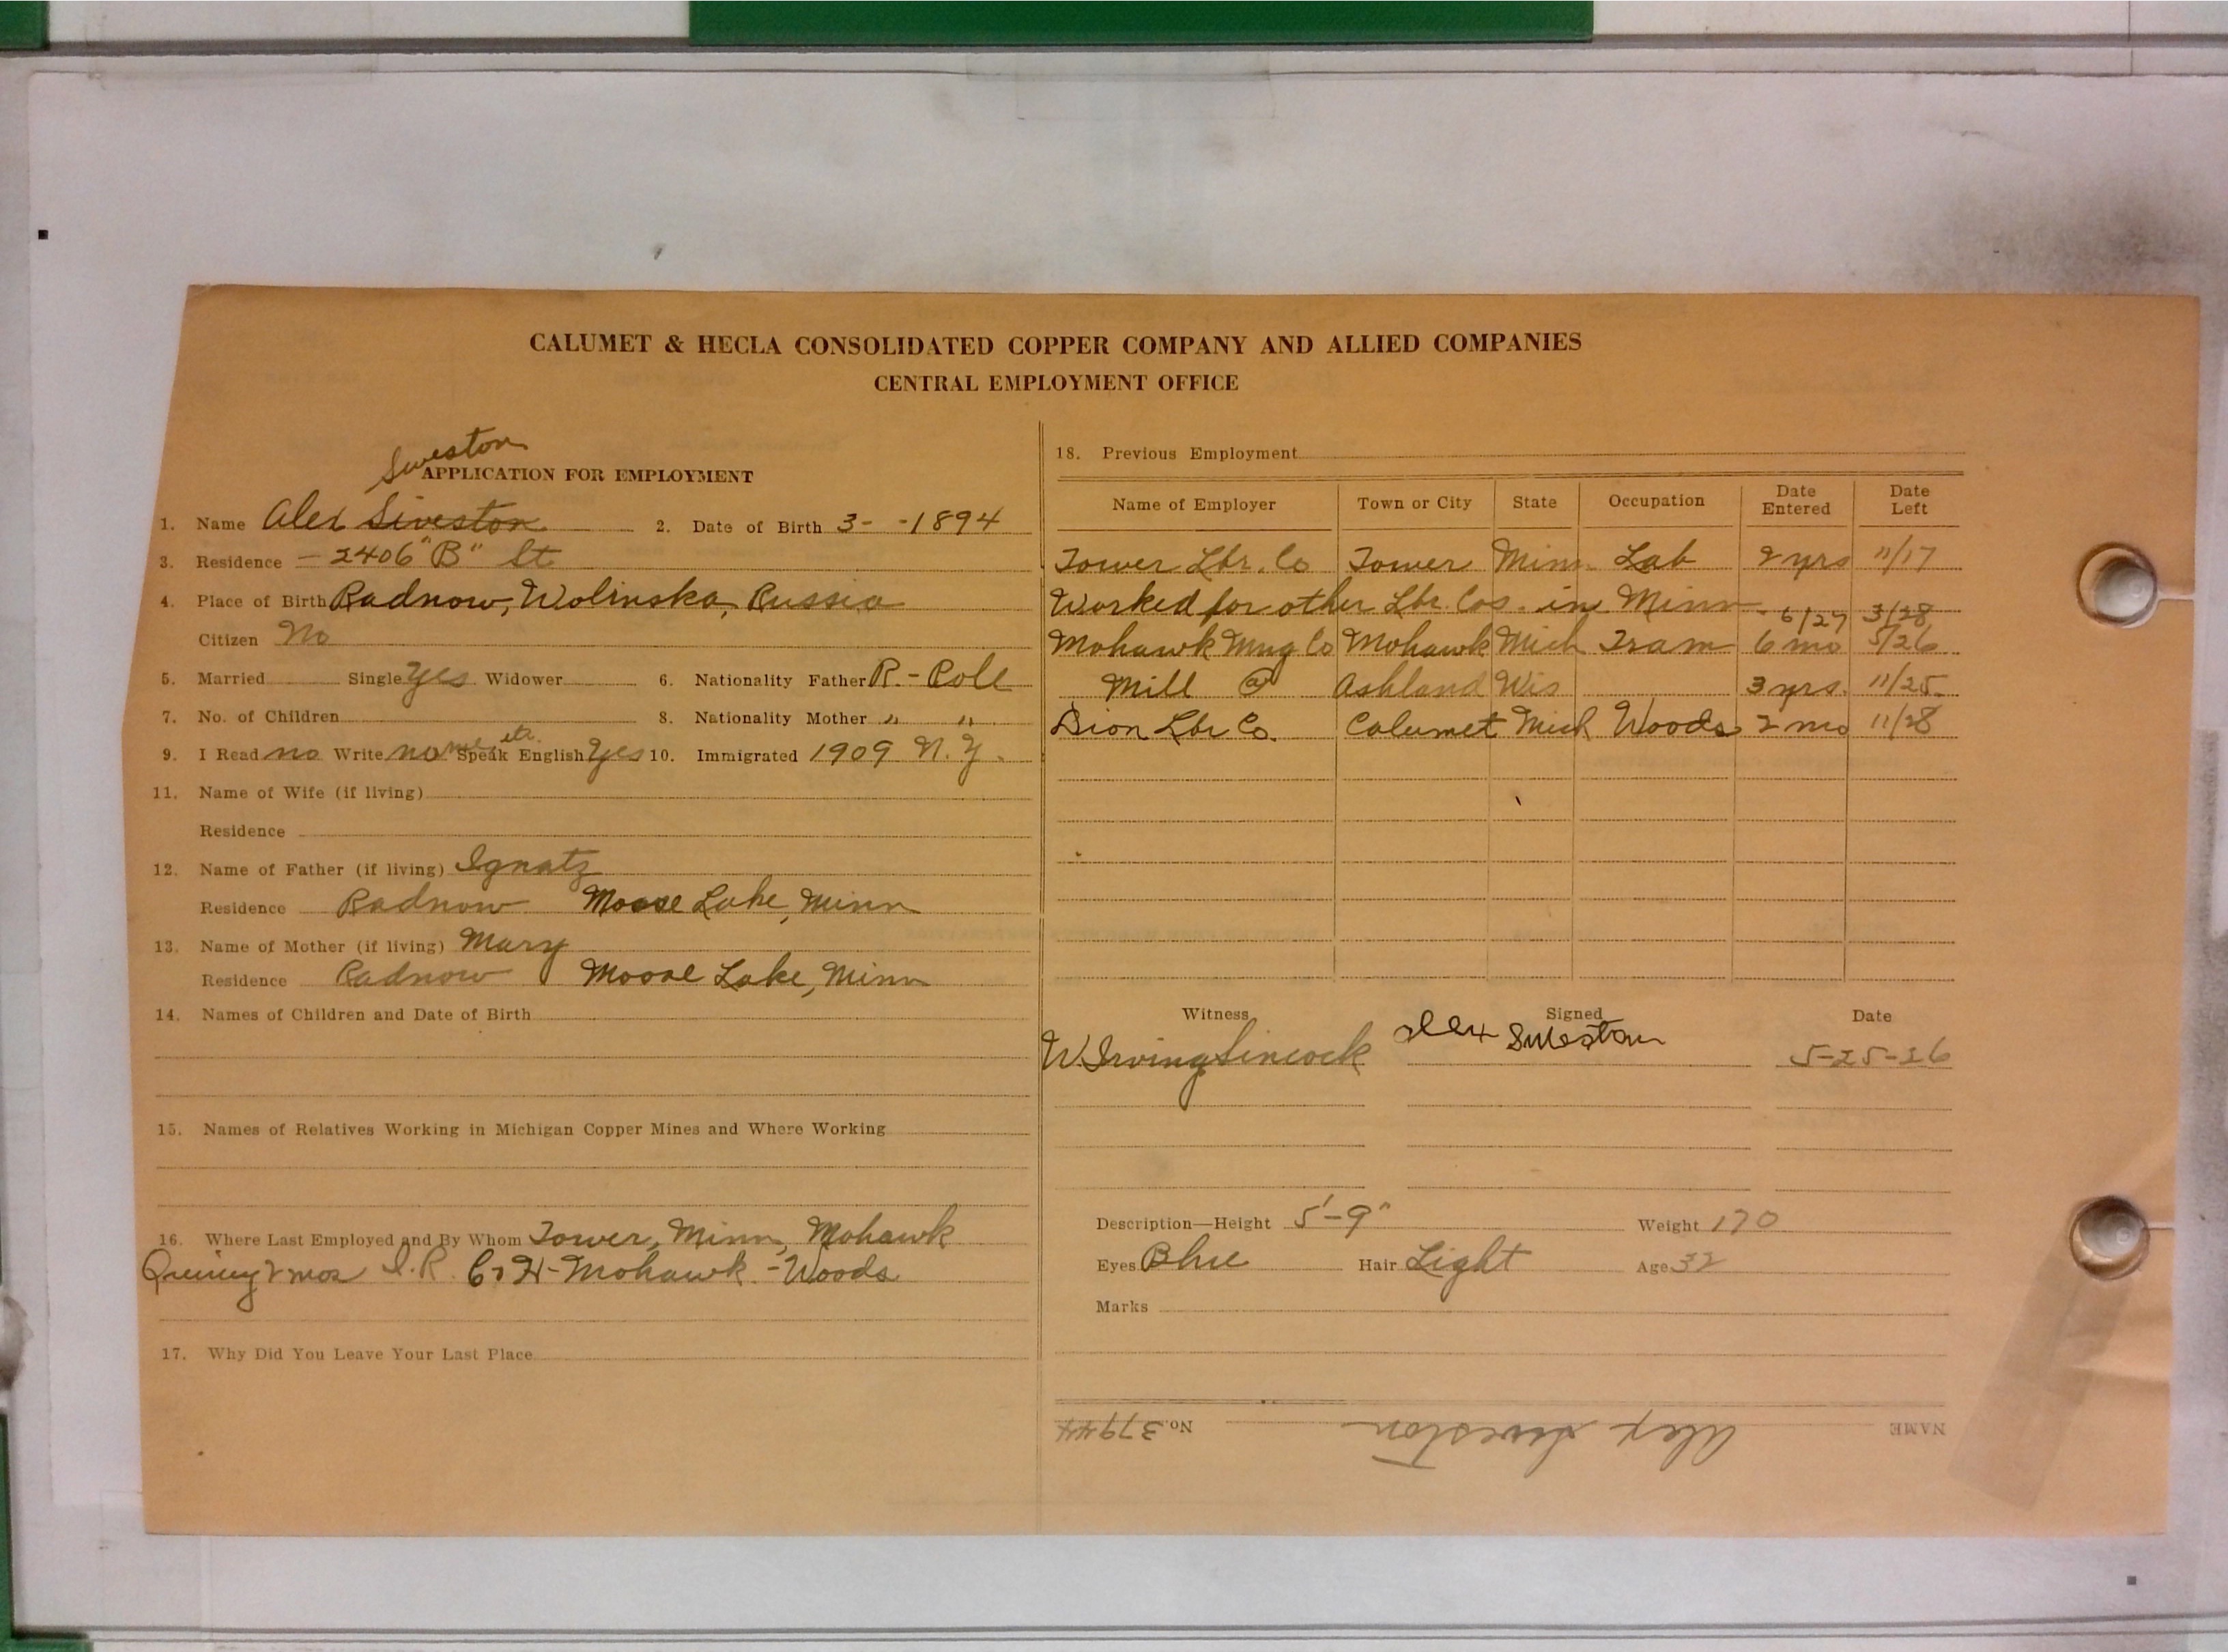 CALUMET & HECLA CONSOLIDATED COPPER COMPANY AND ALLIED COMPANIES
CENTRAL EMPLOYMENT OFFICE
Sweston
APPLICATION FOR EMPLOYMENT
1. Name Alex Siveston 2. Date of Birth 3- -1894
3. Residence - 2406 "B" St
4. Place of Birth Radnow, Wolinska, Russia
Citizen No
5. Married Single yes Widower 6. Nationality Father R.-Pole
7. No. of Children 8. Nationality Mother " "
9. I Read no Write no Speak English yes 10. Immigrated 1909 N.Y.
11. Name of Wife (if living)
Residence
12. Name of Father (if living) Ignatz
Residence Radnow Moose Lake, Minn
13. Name of Mother (if living) Mary
Residence Radnow Moose Lake, Minn
14. Names of Children and Date of Birth
15. Names of Relatives Working in Michigan Copper Mines and Where Working
16. Where Last Employed and By Whom Tower, Minn, Mohawk
Quincy 2 mos I.R. C&H-Mohawk-Woods
17. Why Did You Leave Your Last Place
18. Previous Employment
Name of Employer Town or City State Occupation Date Entered Date Left
Tower Lbr. Co Tower Minn Lab 2 yrs 11/17
Worked for other Lbr. Cos. in Minn
6/27 3/28
Mohawk Mng Co Mohawk Mich Tram 6 mo 5/26
Mill @ Ashland Wis 3 yrs. 11/25
Dion Lbr Co. Calumet Mich Woods 2 mo 11/28
Witness Signed Date
W. Irving Sincock Alex Sweston 5-25-26
Description—Height 5'-9" Weight 170
Eyes Blue Hair Light Age 32
Marks
NAME Alex Sweston No. 37944